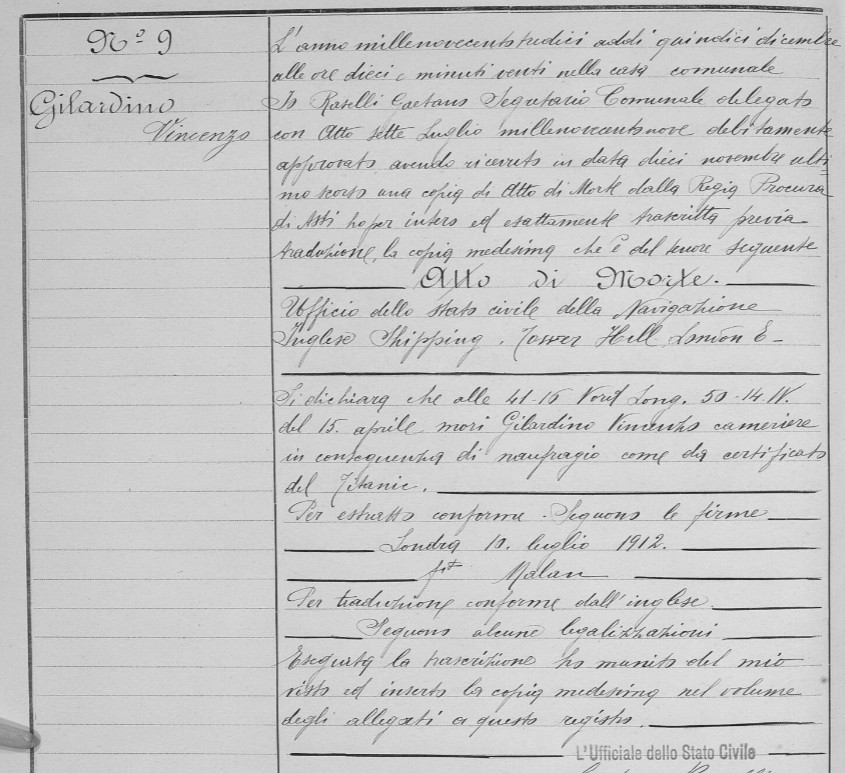 Nº 9
Gilardino
Vincenzo
L'anno millenovecentotredici addì quindici dicembre
alle ore dieci e minuti venti nella casa comunale
Io Raselli Gaetano Segretario Comunale delegato
con Atto sette Luglio millenovecentonove debitamente
approvato, avendo ricevuto in data dieci novembre ulti-
mo scorso una copia di Atto di Morte dalla Regia Procura
di Asti ho per intero ed esattamente trascritta previa
traduzione, la copia medesima che è del tenore seguente
Atto di Morte.
Ufficio dello stato civile della Navigazione
Inglese Shipping. Tower Hill London E-
Si dichiara che alle 41-16 Nord Long. 50-14.W.
del 15. aprile morì Gilardino Vincenzo cameriere
in conseguenza di naufragio come da certificato
del Titanic.
Per estratto conforme. Seguono le firme
Londra 10. luglio 1912.
Malan
Per traduzione conforme dall'inglese.
Seguono alcune legalizzazioni
Eseguita la trascrizione ho munito del mio
visto ed inserto la copia medesima nel volume
degli allegati a questo registro.
L'Ufficiale dello Stato Civile